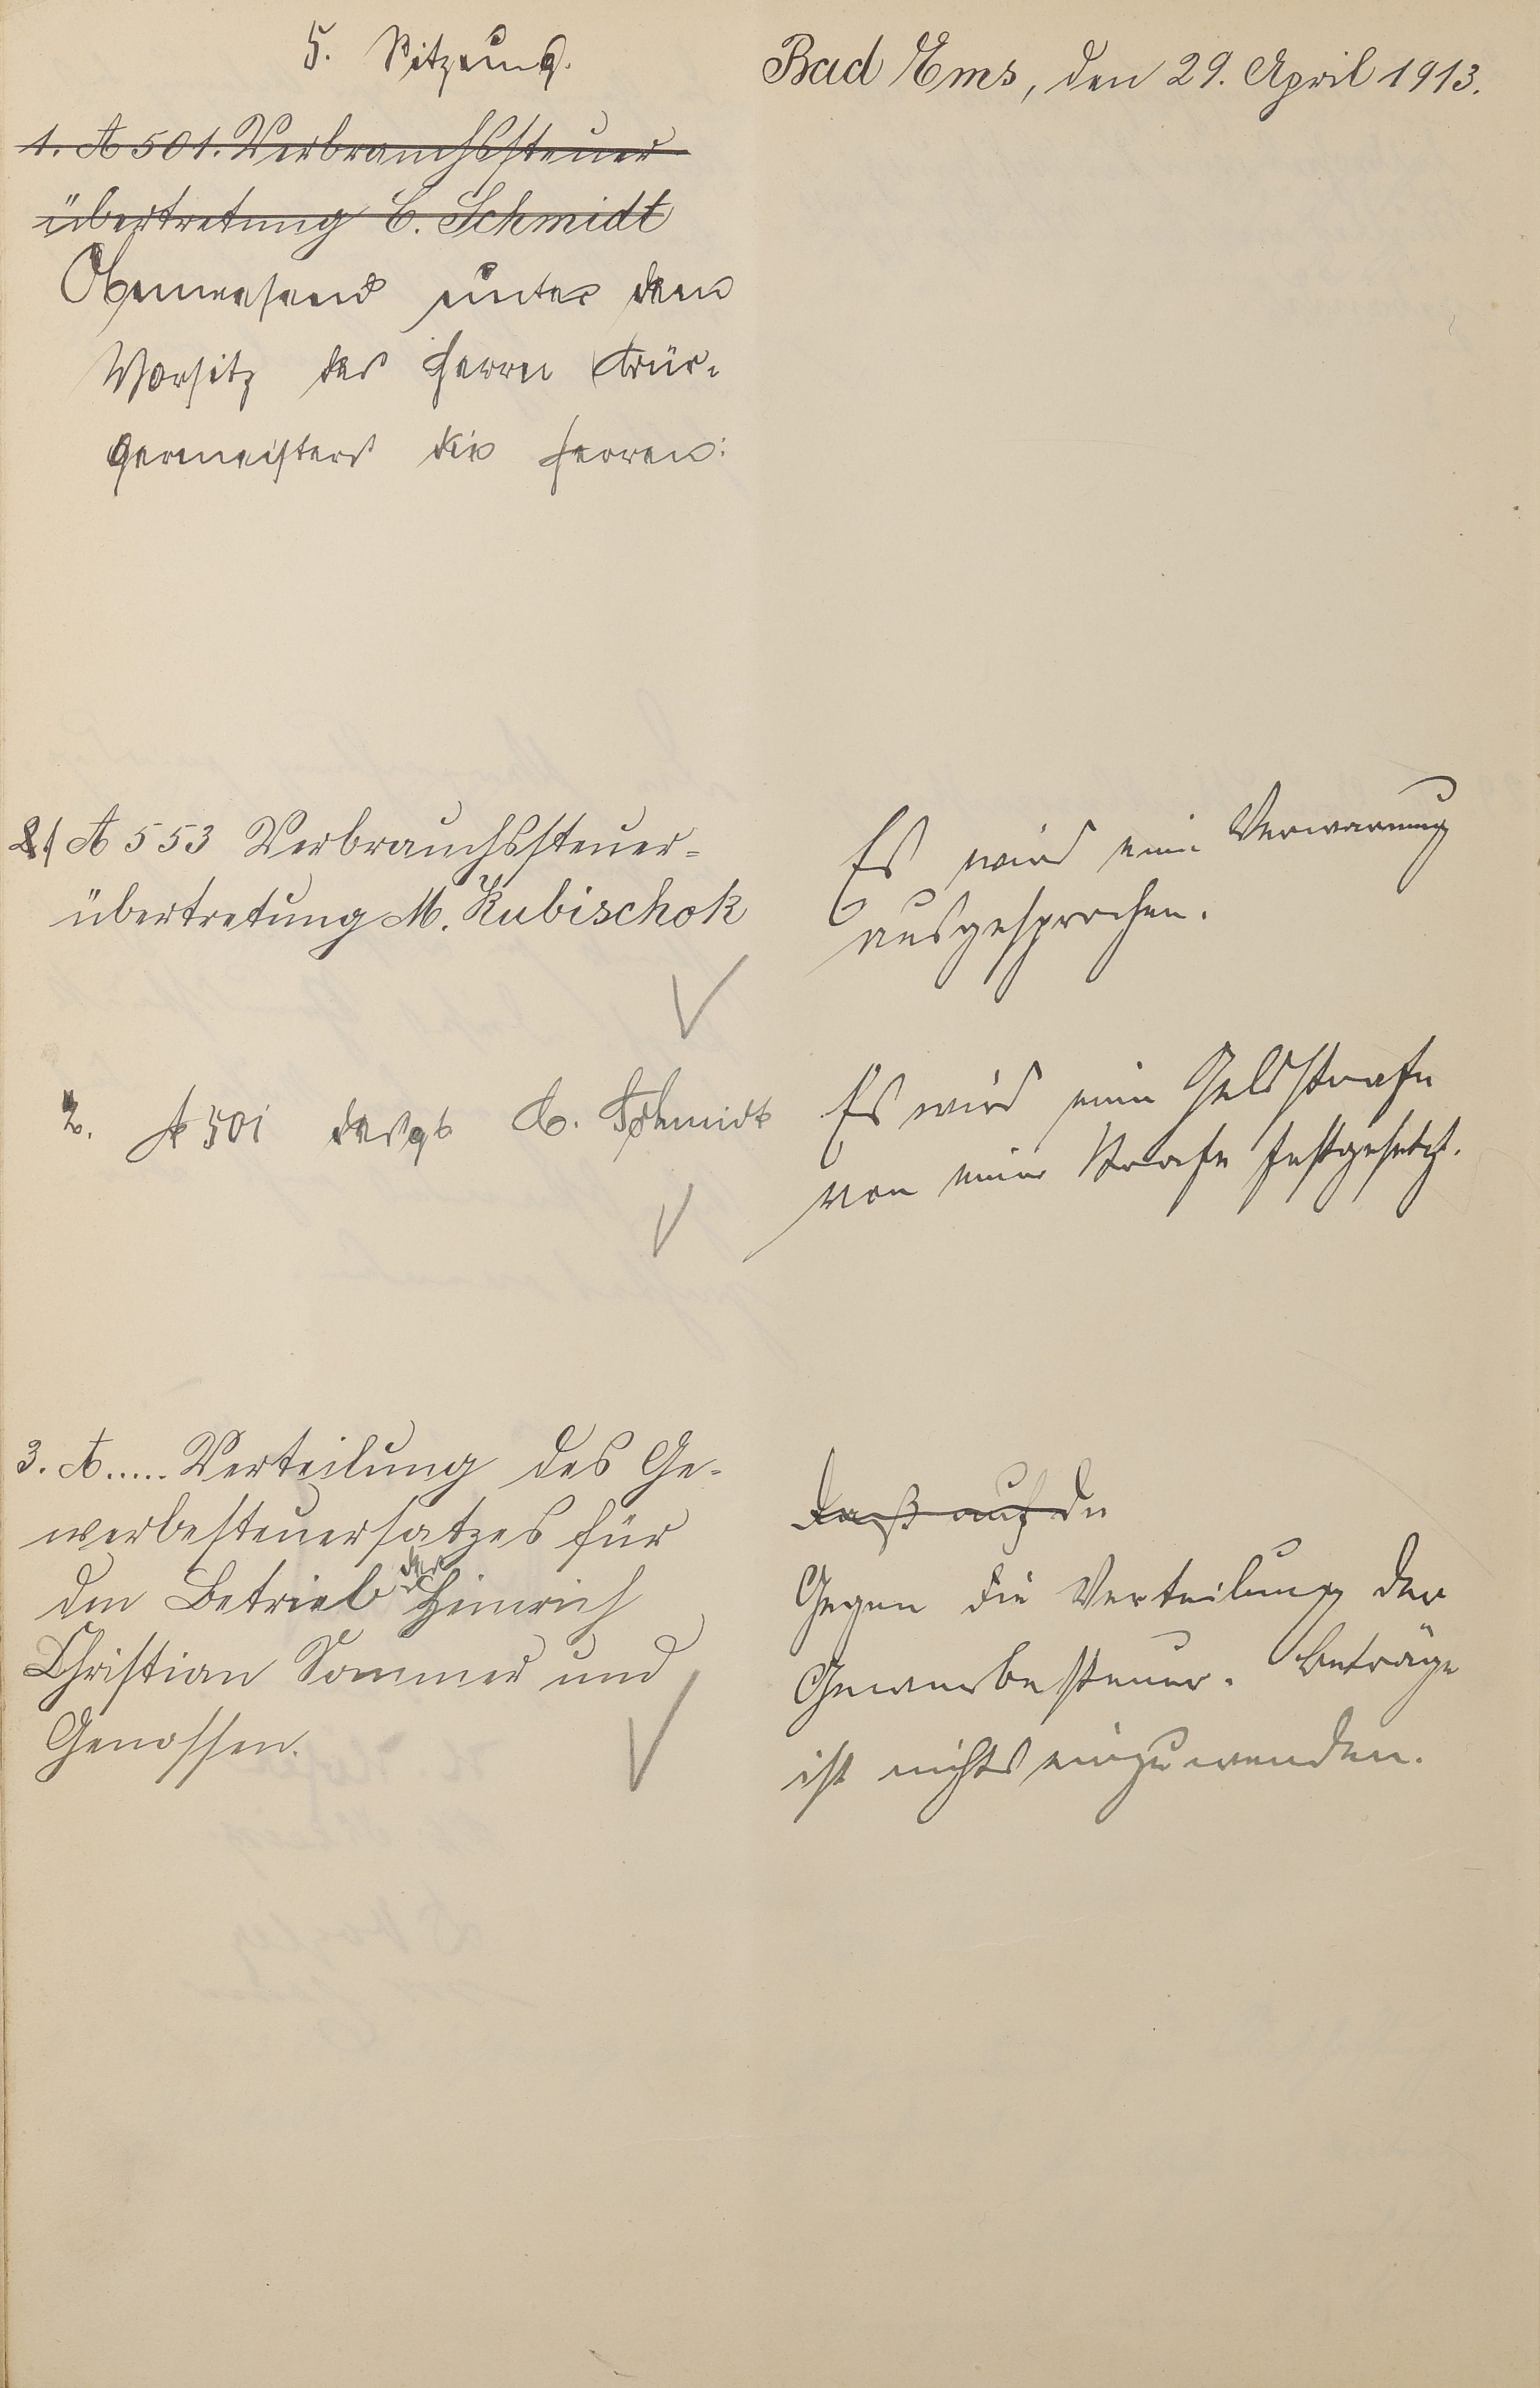 5. Sitzung.
Bad Ems, den 29. April 1913.
1. A 501. Verbrauchssteuer
übertretung C. Schmidt
Anwesend unter dem
Vorsitz des Herrn Bür-
germeisters die Herren:
1 A 553 Verbrauchssteuer-
übertretung M. Kubischok
Es wird eine Verwarnung
ausgesprochen.
2. A 501 desgl. C. Schmidt
Es wird eine Geldstrafe
von einer Mark festgesetzt.
3. A..... Verteilung des Ge-
werbesteuersatzes für
den Betrieb der Heinrich
Christian Sommer und
Genossen.
Daß auf die
Gegen die Verteilung der
Gewerbesteuer-Beträge
ist nichts einzuwenden.